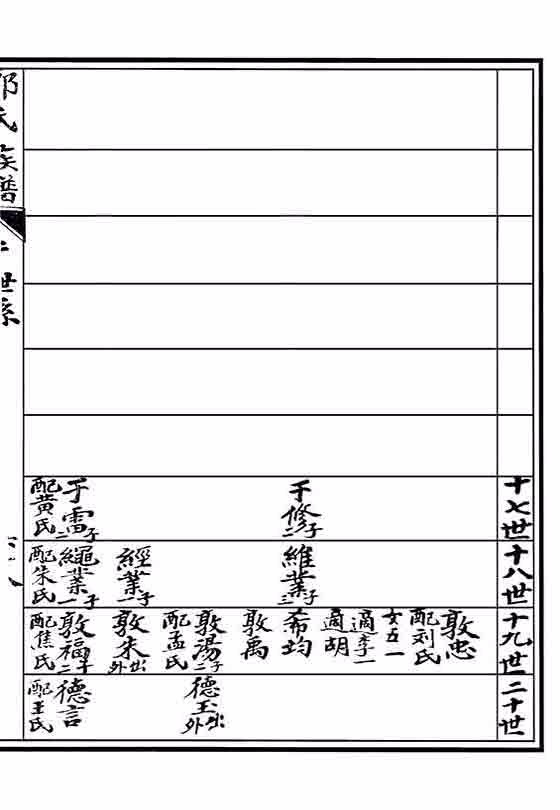 十七世
于修
二子
于雷
二子
配黄氏
十八世
維業
三子
經業
一子
繩業
一子
配朱氏
十九世
敦忠
配刘氏
女五一
適李一
適胡
希均
敦禹
敦湯
二子
配孟氏
敦朱
外出
敦福
二子
配焦氏
二十世
德玉
外出
德言
配王氏
氏族譜
世系